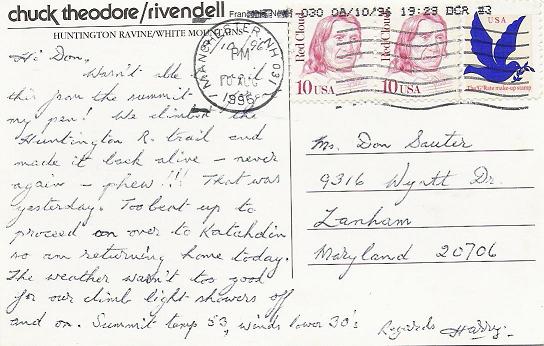 chuck theodore/rivendell
HUNTINGTON RAVINE/WHITE MOUNTAINS
8/10/96
Hi Don,
Wasn't able to
this from the summit
my pen! We climbed the
Huntington R. trail and
made it back alive - never
again - phew!!! That was
yesterday. Too beat up to
proceed on over to Katahdin
so am returning home today.
The weather wasn't too good
for our climb light showers off
and on. Summit temp 53, winds lower 30's
Regards Harry.
MANCHESTER, NH 031
PM
10 AUG
1996
030 08/10/96 19:29 BCR #3
Red Cloud
10 USA
Red Cloud
10 USA
USA
The 'G' Rate make-up stamp
Mr. Don Sauter
9316 Wyatt Dr.
Lanham
Maryland 20706